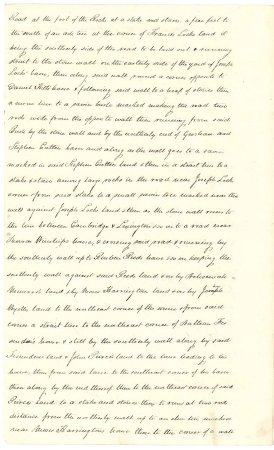 Road at the foot of the Rocks at a stake and stones, a few feet to
the south of an elm tree at the corner of Francis Locks land it
being the easterly side of the road to be laid out & running
strait to the stone wall on the easterly side of the yard of Joseph
Locks barn, then along said wall round a corner opposite to
Daniel house & following said wall to a heap of stones then
a line to a stake marked making the road two
rods wide from the opposite wall then running from said
by the stone wall and by the southerly end of Gershom and
Stephen Cutter barn and along as the wall goes to a
marked in said Stephen Cutter land & then in a strait line to a
stake & stones among large rocks in the road near Joseph Lock
corner & from said stake to a small tree marked near the
wall against Joseph Locks land & then as the stone wall runs to
the line between Cambridge & Lexington so on to a road near
Thomas house, & crossing said road & running by
the southerly wall up to Reuben Reed house & so on keeping the
southerly wall against said Reeds land & so by Bartholomew
land, by Moses Harrington land & so by Joseph
land to the southeast corner of the same & from said
corner a strait line to the northeast corner of
house, & still by the southerly wall along by said
land & John Peirce land to the lane leading to his
house, then from said lane to the southeast corner of his barn
then along by the end thereof then to the northeast corner of said
Peirce land to a stake and stones then to run at two rods
distance from the northerly wall up to an elm tree marked
near Moses Harringtons house then to the corner of a wall